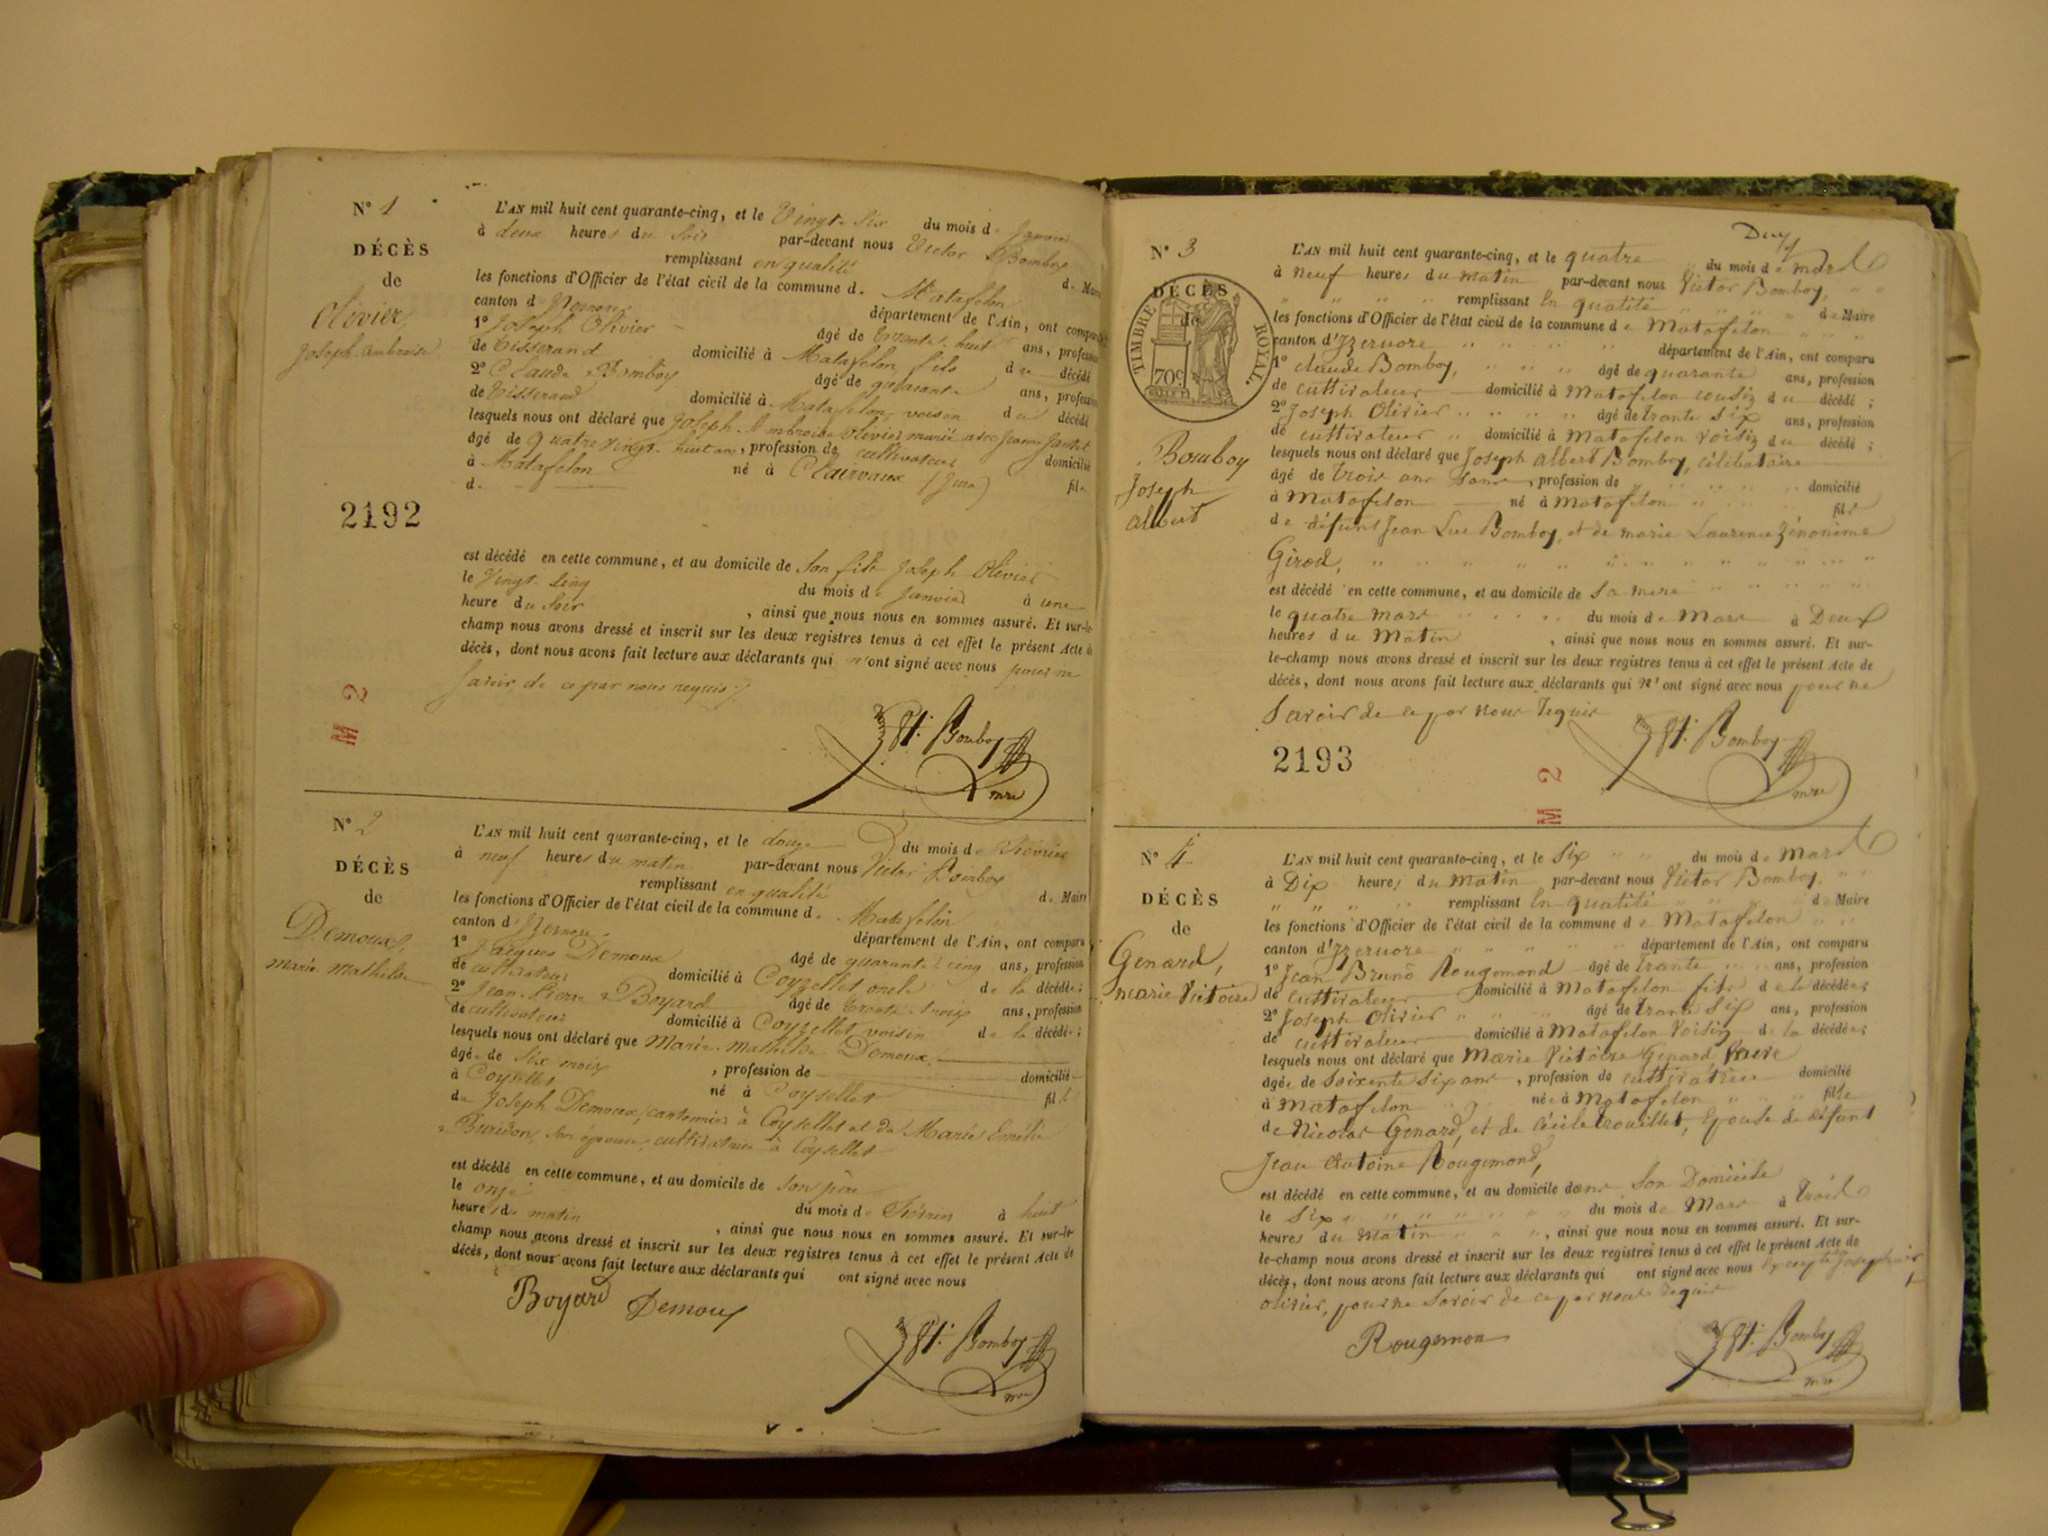 N° 1
DÉCÈS
de
Olivier,
Joseph ambroise
2192
M 2
L'AN mil huit cent quarante-cinq, et le Vingt-Six du mois de Janvier
à deux heures du Soir par-devant nous Victor Bomboy
remplissant en qualité de Maire
les fonctions d'Officier de l'état civil de la commune de Matafelon
canton d' département de l'Ain, ont comparu
1° Joseph Olivier âgé de trente-huit ans, profession
de Tisserand domicilié à Matafelon, fils du décédé
2° Claude Bomboy âgé de quarante ans, profession
de Tisserand domicilié à Matafelon, voisin du décédé
lesquels nous ont déclaré que Joseph Ambroise Olivier marié avec Jeanne
âgé de quatre vingt huit ans, profession de cultivateur domicilié
à Matafelon né à Clairvaux (Jura) fil
d
est décédé en cette commune, et au domicile de Son fils Joseph Olivier
le Vingt-Cinq du mois de Janvier à une
heure du Soir, ainsi que nous nous en sommes assuré. Et sur-le-
champ nous avons dressé et inscrit sur les deux registres tenus à cet effet le présent Acte de
décès, dont nous avons fait lecture aux déclarants qui n'ont signé avec nous pour ne
Savoir de ce par nous requis
Bomboy
mre
N° 2
DÉCÈS
de
Demoux,
marie mathilde
L'AN mil huit cent quarante-cinq, et le douze du mois de Février
à neuf heures du matin par-devant nous Victor Bomboy
remplissant en qualité de Maire
les fonctions d'Officier de l'état civil de la commune de Matafelon
canton d' département de l'Ain, ont comparu
1° Jacques Demoux âgé de quarante cinq ans, profession
de cultivateur domicilié à Coyzellet oncle de la décédée;
2° Jean-Pierre Boyard âgé de trente-trois ans, profession
de cultivateur domicilié à Coyzellet voisin de la décédée;
lesquels nous ont déclaré que Marie-Mathilde Demoux
âgée de Six mois, profession de domicilié
à Coysellet né à Coysellet fille
de Joseph Demoux, cantonnier à Coysellet et de Marie Emélie
Buridon, Son épouse, cultivatrice à Coysellet
est décédé en cette commune, et au domicile de Son père
le onze du mois de Février à huit
heures du matin, ainsi que nous nous en sommes assuré. Et sur-le-
champ nous avons dressé et inscrit sur les deux registres tenus à cet effet le présent Acte de
décès, dont nous avons fait lecture aux déclarants qui ont signé avec nous
Boyard Demoux
Bomboy
mre
Deux
N° 3
DÉCÈS
de
TIMBRE ROYAL.
70c
Bomboy
Joseph
albert
L'AN mil huit cent quarante-cinq, et le quatre du mois de mars
à neuf heures du matin par-devant nous Victor Bomboy,
remplissant en qualité de Maire
les fonctions d'Officier de l'état civil de la commune de Matafelon
canton d'Yzernore département de l'Ain, ont comparu
1° claude Bomboy, âgé de quarante ans, profession
de cultivateur domicilié à Matafelon cousin du décédé;
2° Joseph Olivier âgé de trante Six ans, profession
de cultivateur domicilié à Matafelon voisin du décédé;
lesquels nous ont déclaré que Joseph albert Bomboy, célibataire
âgé de trois ans, profession de domicilié
à Matafelon né à Matafelon fils
de défunt Jean Luc Bomboy, et de marie Laurence Zénonime
Girod,
est décédé en cette commune, et au domicile de Sa mère
le quatre mars du mois de Mars à Deux
heures du Matin, ainsi que nous nous en sommes assuré. Et sur-
le-champ nous avons dressé et inscrit sur les deux registres tenus à cet effet le présent Acte de
décès, dont nous avons fait lecture aux déclarants qui n'ont signé avec nous pour ne
Savoir de ce par nous requis
Bomboy
mre
2193
M 2
N° 4
DÉCÈS
de
Genard,
marie Victoire
L'AN mil huit cent quarante-cinq, et le Six du mois de mars
à Dix heures du matin par-devant nous Victor Bomboy,
remplissant en qualité de Maire
les fonctions d'Officier de l'état civil de la commune de Matafelon
canton d'Yzernore département de l'Ain, ont comparu
1° Jean Bruno Rougemond âgé de trante ans, profession
de cultivateur domicilié à Matafelon fils de la décédée;
2° Joseph Olivier âgé de trante Six ans, profession
de cultivateur domicilié à Matafelon voisin de la décédée;
lesquels nous ont déclaré que Marie Victoire Genard Veuve
âgée de Soixente Six ans, profession de cultivatrice domicilié
à Matafelon née à Matafelon fille
de Nicolas Genard, et de cécile trouillet, Epouse de défunt
Jean Antoine Rougemond,
est décédé en cette commune, et au domicile dans Son Domicile
le Six du mois de Mars à trois
heures du Matin, ainsi que nous nous en sommes assuré. Et sur-
le-champ nous avons dressé et inscrit sur les deux registres tenus à cet effet le présent Acte de
décès, dont nous avons fait lecture aux déclarants qui ont signé avec nous Excepté Joseph
Olivier, pour ne Savoir de ce par nous requis
Rougemon
Bomboy
mre